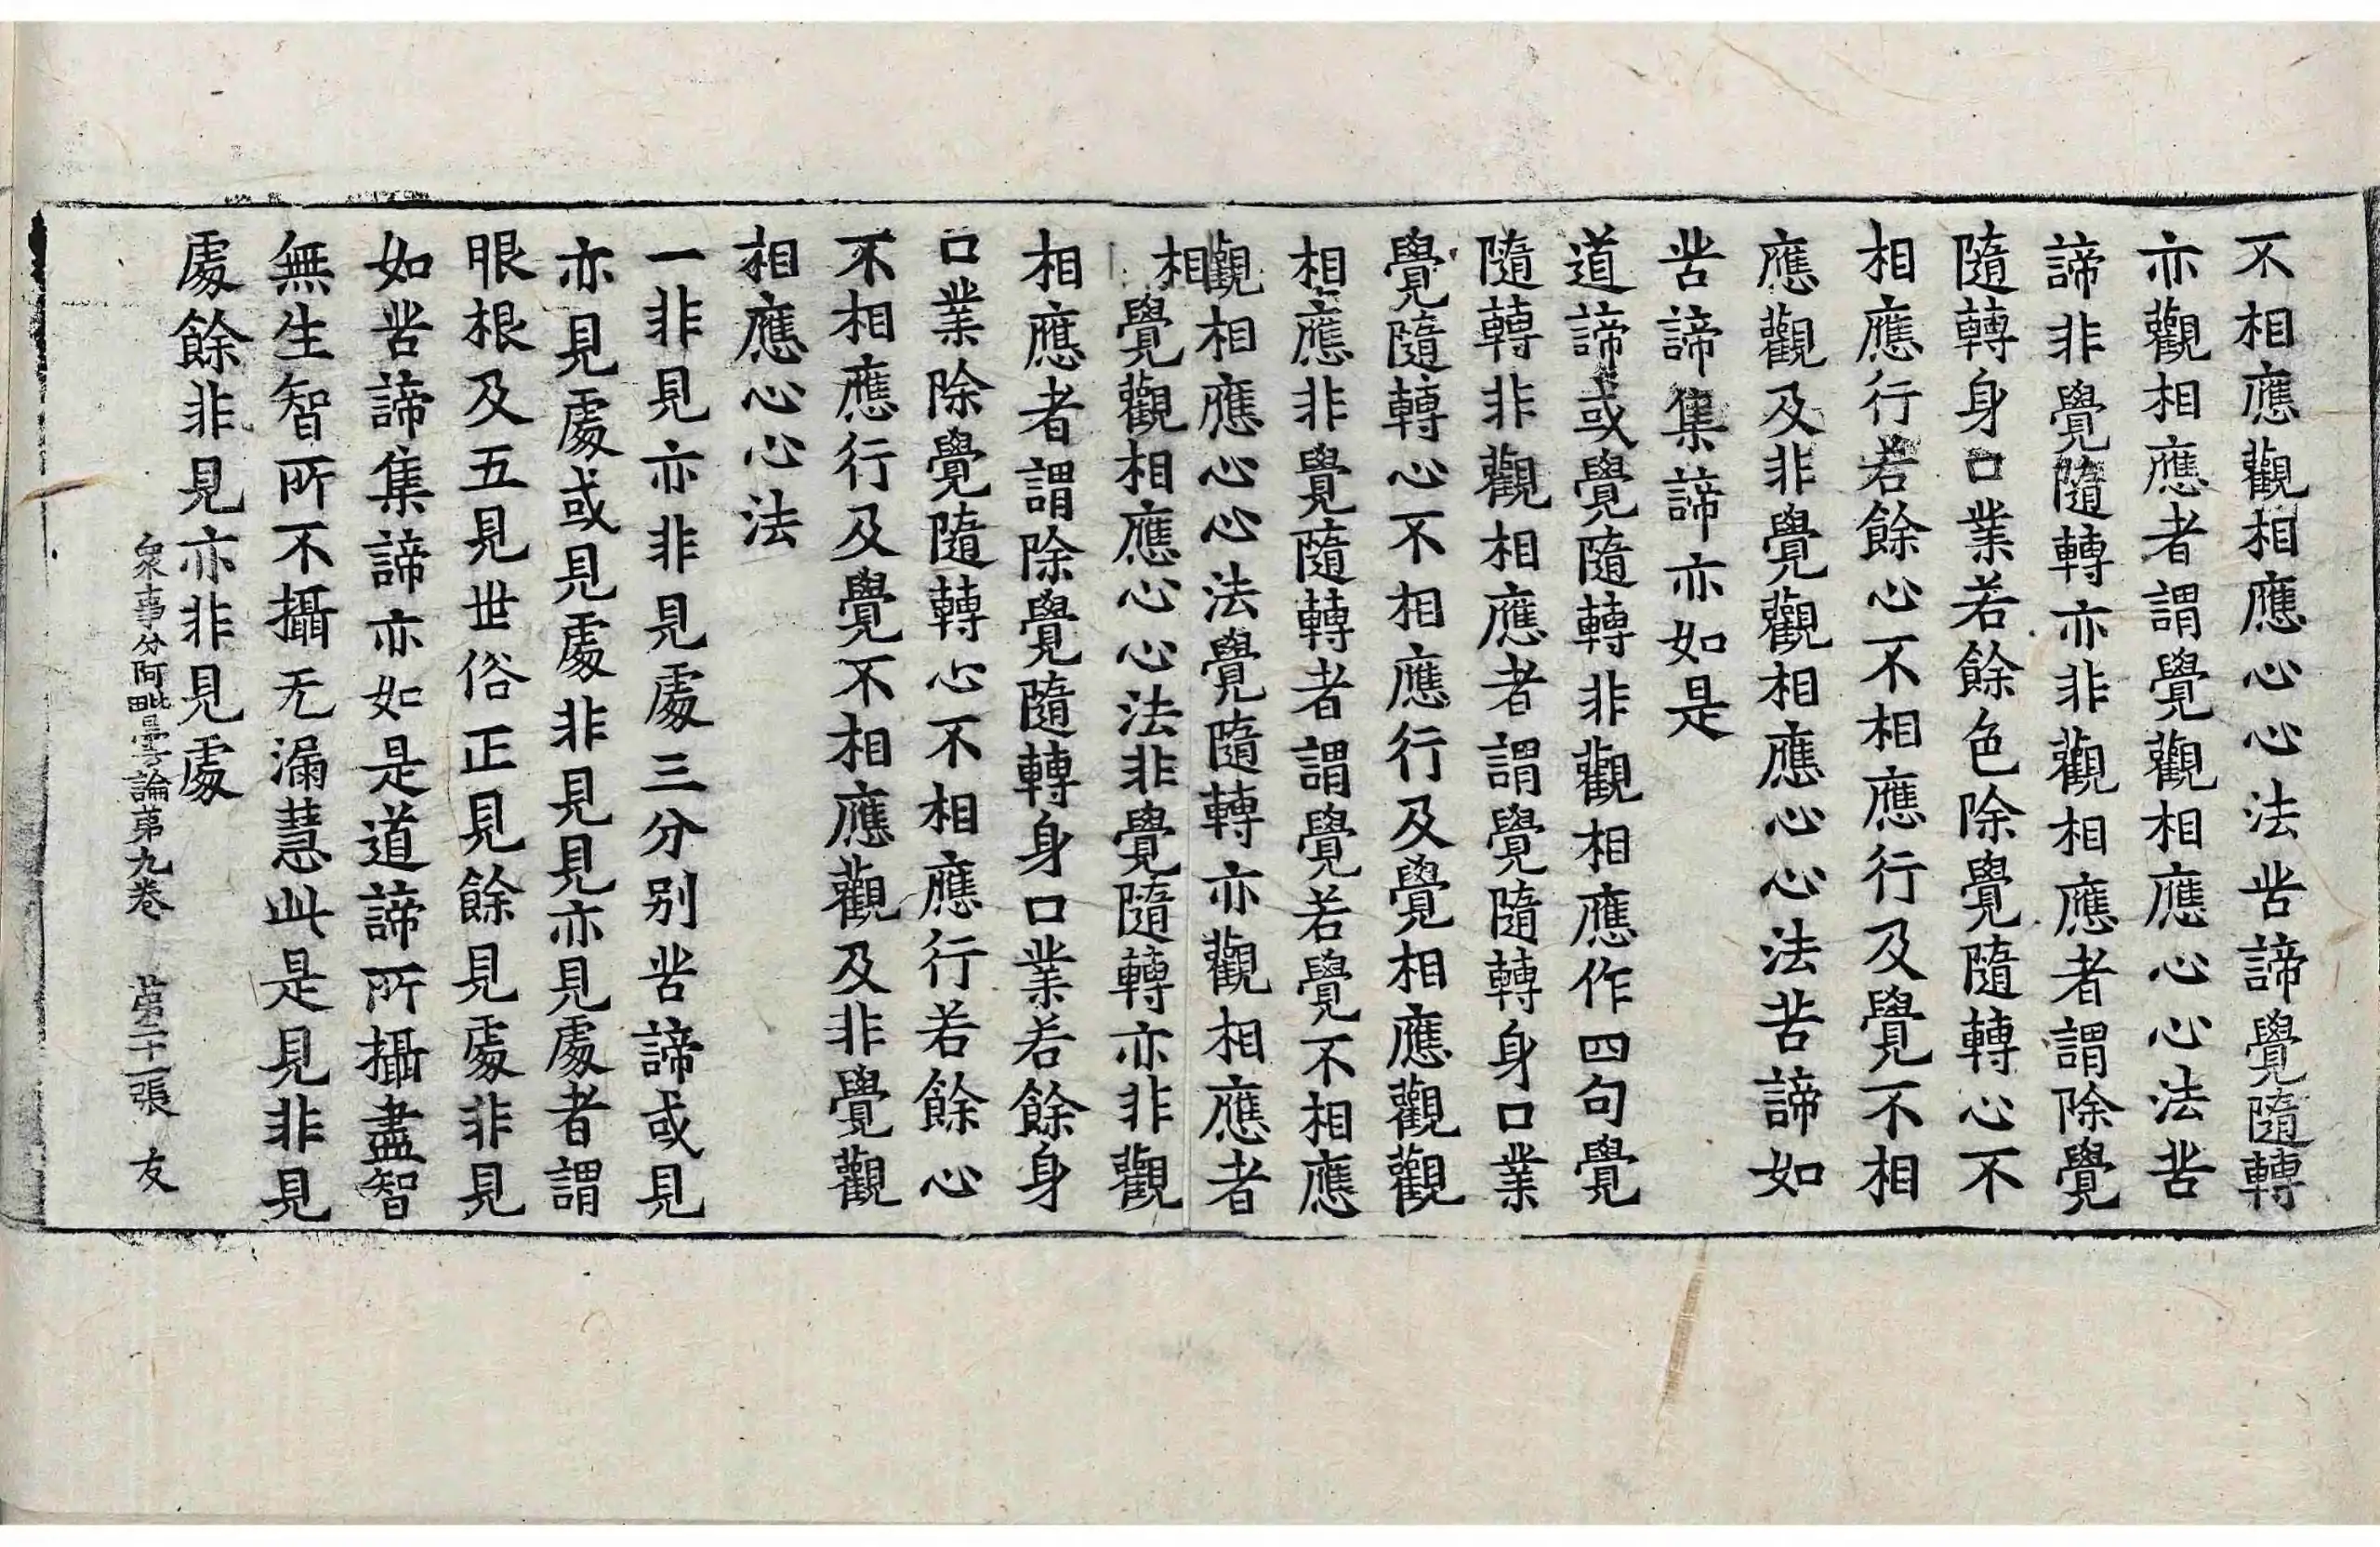 不相應觀相應心心法苦諦覺隨轉
亦觀相應者謂覺觀相應心心法苦
諦非覺隨轉亦非觀相應者謂除覺
隨轉身口業若餘色除覺隨轉心不
相應行若餘心不相應行及覺不相
應觀及非覺觀相應心心法苦諦如
苦諦集諦亦如是
道諦或覺隨轉非觀相應作四句覺
隨轉非觀相應者謂覺隨轉身口業
覺隨轉心不相應行及覺相應觀觀
相應非覺隨轉者謂覺若覺不相應
觀相應心心法覺隨轉亦觀相應者
相覺觀相應心心法非覺隨轉亦非觀
相應者謂除覺隨轉身口業若餘身
口業除覺隨轉心不相應行若餘心
不相應行及覺不相應觀及非覺觀
相應心心法
一非見亦非見處三分別苦諦或見
亦見處或見處非見見亦見處者謂
眼根及五見世俗正見餘見處非見
如苦諦集諦亦如是道諦所攝盡智
無生智所不攝无漏慧此是見非見
處餘非見亦非見處
衆事分阿毗曇論第九卷 第二十一張 友